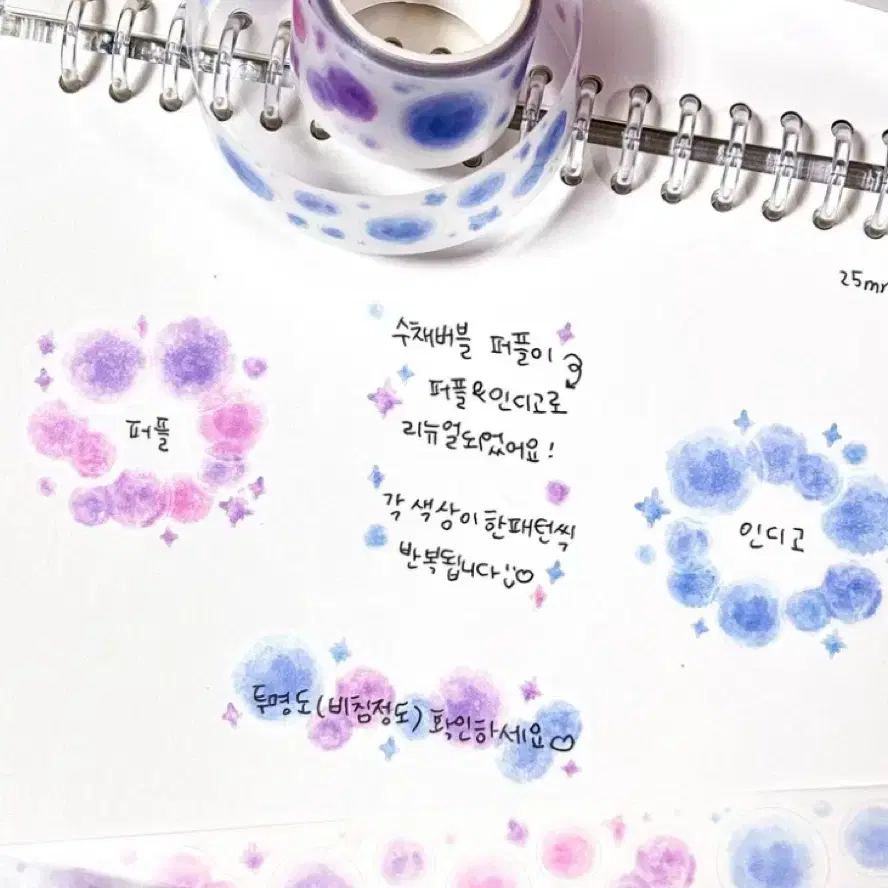 25m
수채버블 퍼플이
퍼플&인디고로
리뉴얼되었어요!
퍼플
각 색상이 한패턴씩
반복됩니다
인디고
투명도(비침정도) 확인하세요♡